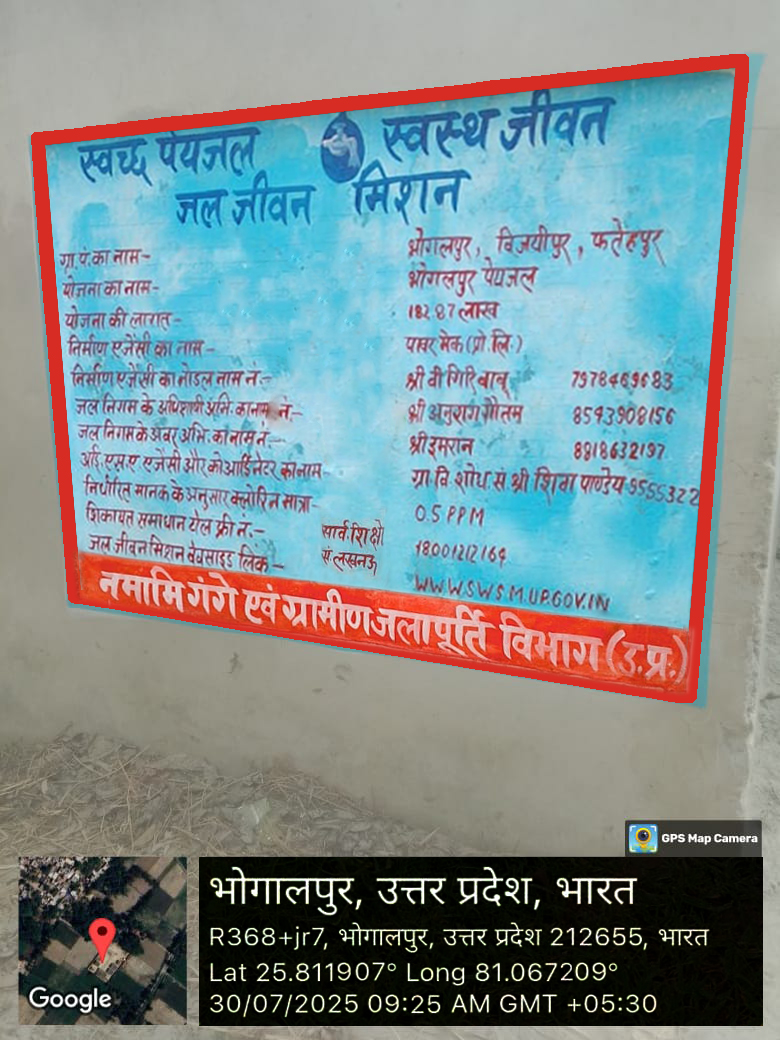 स्वच्छ पेयजल स्वस्थ जीवन
जल जीवन मिशन
ग्रा.पं.का नाम- भोगलपुर, विजयीपुर, फतेहपुर
योजना का नाम- भोगलपुर पेयजल
योजना की लागत- 182.87 लाख
निर्माण एजेंसी का नाम- पावर मेक (प्रो.लि.)
निर्माण एजेंसी का नोडल नाम नं.- श्री वी गिरि बाबू 7978469683
जल निगम के अधिशाषी अभि. का नाम नं.- श्री अनुराग गौतम 8543908156
जल निगम के अवर अभि. का नाम नं.- श्री इमरान 8818632197
आई.एस.ए एजेंसी और कोआर्डिनेटर का नाम- ग्रा.वि.शोध सं श्री शिवा पाण्डेय-9555322
निर्धारित मानक के अनुसार क्लोरिन मात्रा- 0.5 PPM
शिकायत समाधान टोल फ्री नं.- 18001212164
जल जीवन मिशन वेवसाइड लिंक- WWW.SWSM.UP.GOV.IN
सं.लखनऊ
नमामि गंगे एवं ग्रामीण जलापूर्ति विभाग (उ.प्र.)
GPS Map Camera
भोगालपुर, उत्तर प्रदेश, भारत
R368+jr7, भोगालपुर, उत्तर प्रदेश 212655, भारत
Lat 25.811907° Long 81.067209°
30/07/2025 09:25 AM GMT +05:30
Google